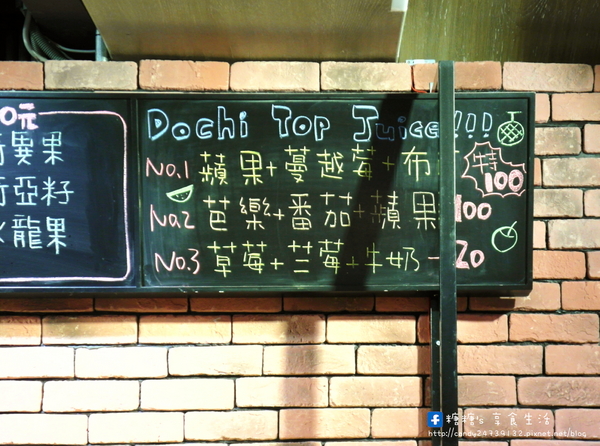 0元
奇異果
奇亞籽
火龍果
Dochi Top Juice!!!
No.1 蘋果+蔓越莓+布 特100
No.2 芭樂+番茄+蘋果 100
No.3 草莓+兰莓+牛奶 - 20
糖糖's 享食生活
http://candy24739132.pixnet.net/blog